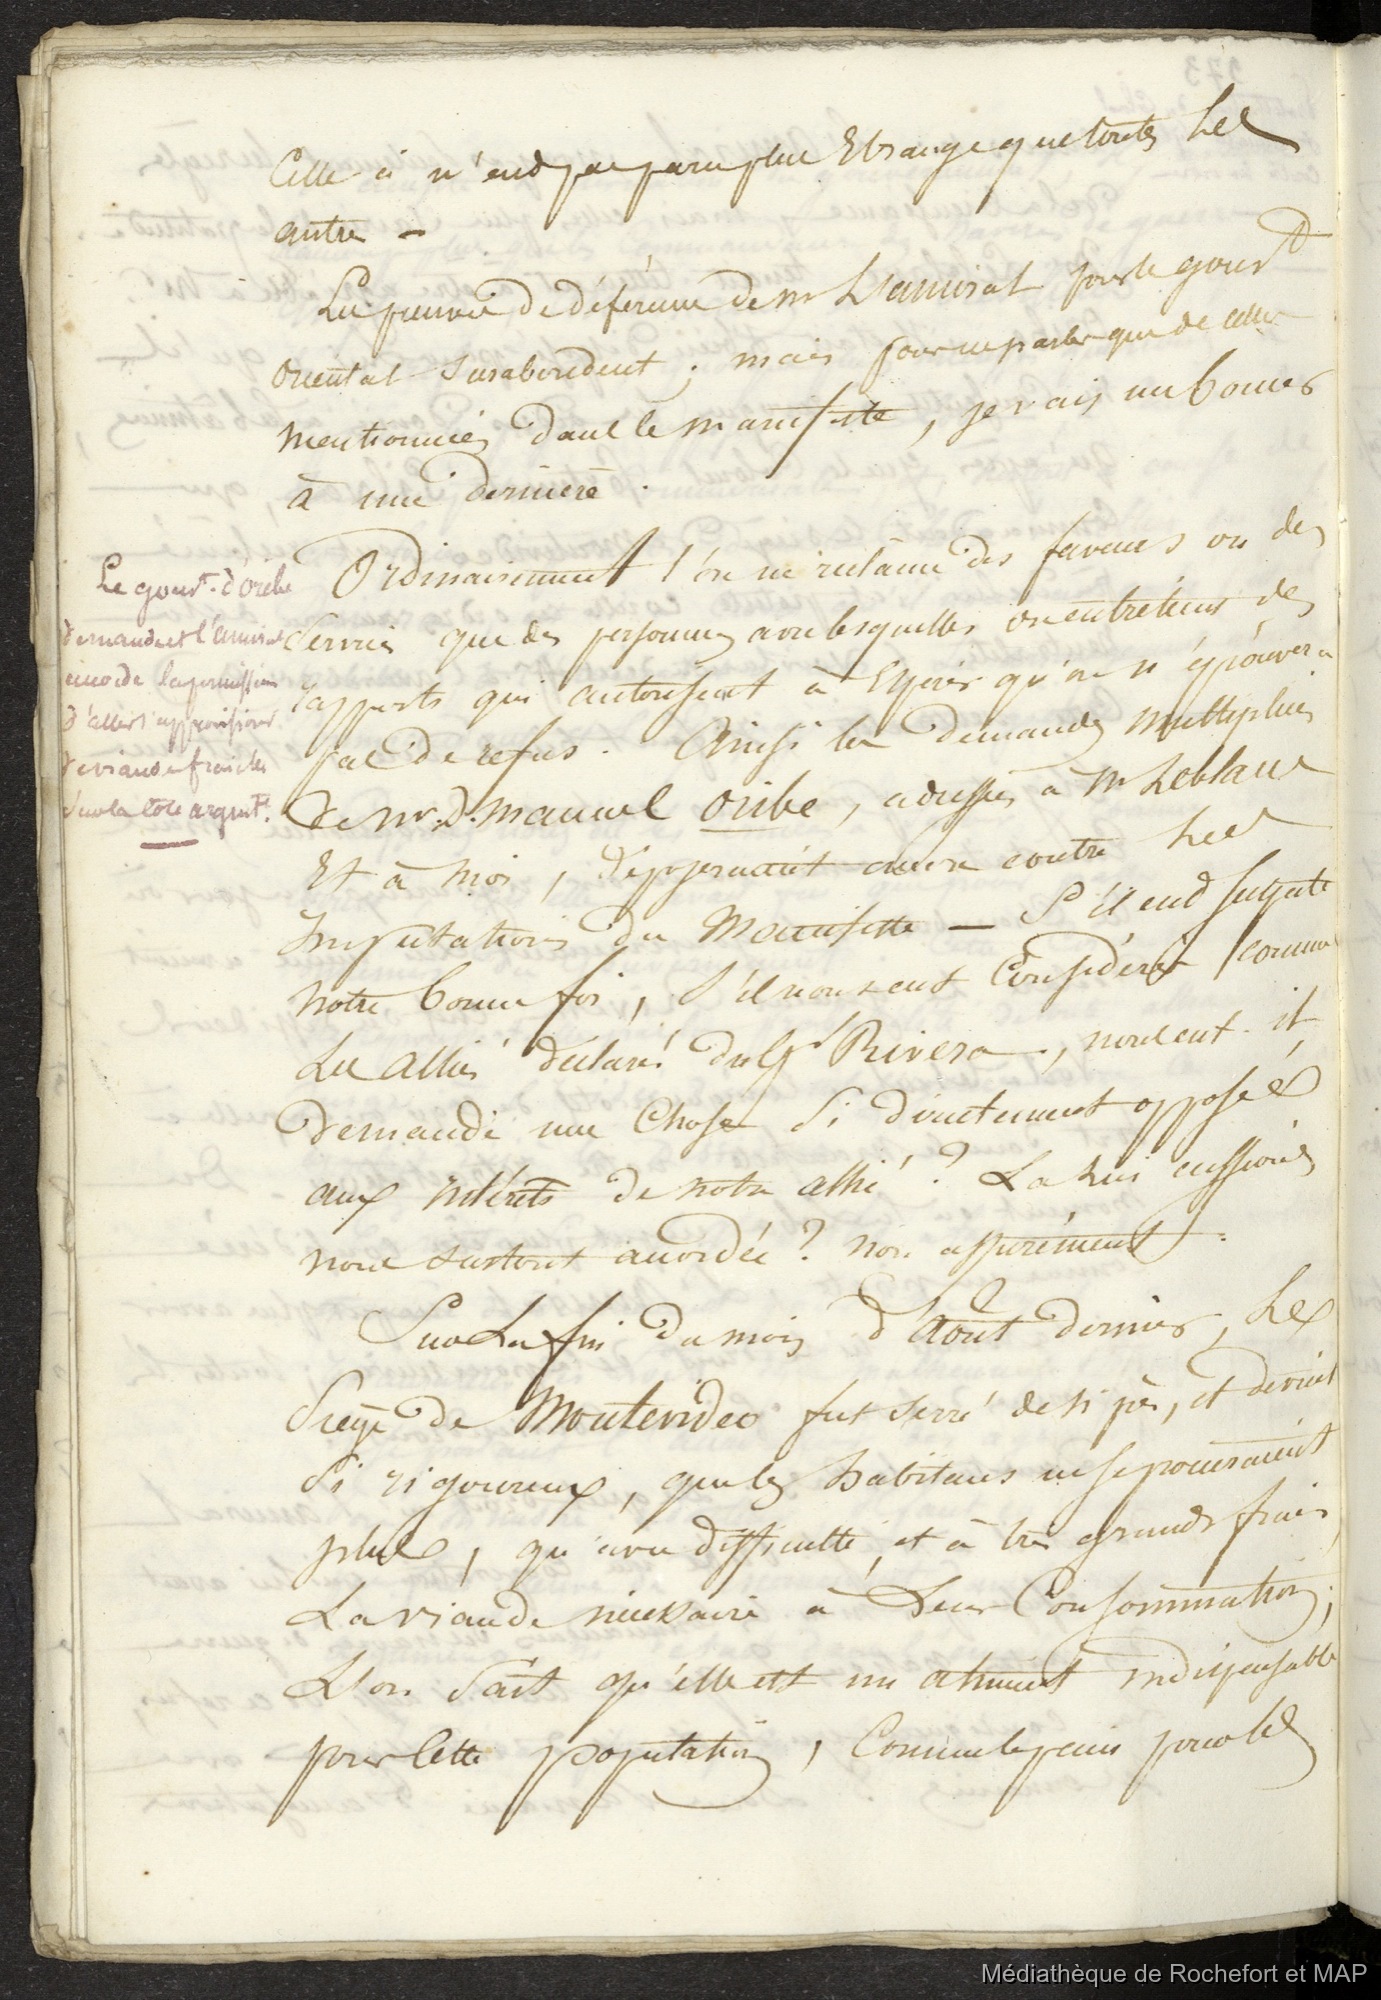 Celle ci n'est pas parue plus Etrange que toutes Les
autres —
Les preuves de déférence de mr L'amiral pour le gouvt
oriental surabondent ; mais pour ne parler que de celles
mentionnées dans le manifeste, je vais me borner
à une dernière .
Le gouvt. d'oribe
demandait l'amiral
accorde la permission
d'aller s'approvisioner
de viande fraiche
sur la côte argent.
Ordinairement l'on ne réclame des faveurs ou des
services que des personnes avec lesquelles on entretient des
rapports qui autorisent à Espérer qu'on n'éprouvera
pas de refus . Ainsi les demandes multipliées
de mr. D. manuel oribe, adressées à Mr Leblanc
Et à moi, déposeraient encore contre Les
Imputations du Manifeste — S'il eut suspecté
notre bonne foi, s'il nous eut Considérés comme
Les alliés déclarés du Gl Rivera, nous eut-il
demandé une Chose si directement opposée
aux intérêts de notre allié ? La lui eussions
nous surtout accordée ? non assurément .
Sur La fin du mois d'Août dernier, Le
Siège de Montevideo fut serré de si près, et devint
si rigoureux, que les habitans ne se procuraient
plus, qu'avec difficulté, et à très grands frais,
La viande nécessaire à Leur Consommation ;
L'on sait qu'elle est un aliment indispensable
pour Cette population, Comme le pain pour les
Médiathèque de Rochefort et MAP